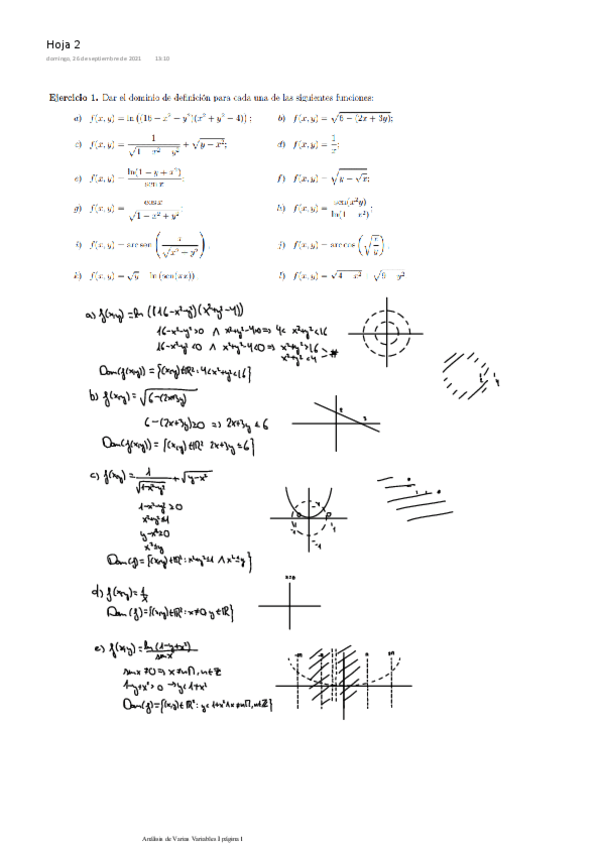 Hoja 2
domingo, 26 de septiembre de 2021 13:10
Ejercicio 1. Dar el dominio de definición para cada una de las siguientes funciones:
a) f(x, y) = ln ((16 − x² − y²)(x² + y² − 4)) ; b) f(x, y) = √(6 − (2x + 3y));
c) f(x, y) = 1/√(1 − x² − y²) + √(y − x²); d) f(x, y) = 1/x;
e) f(x, y) = ln(1 − y + x²)/sen x; f) f(x, y) = √(y − √x);
g) f(x, y) = cos x/√(1 − x² + y²); h) f(x, y) = sen(x²y)/ln(1 − x²);
i) f(x, y) = arc sen (x/√(x² − y²)) . j) f(x, y) = arc cos (√(x/y)) .
k) f(x, y) = √y ln (sen(xx)) l) f(x, y) = √(4 − x²) √(9 − y²)
a) f(x,y) = ln ((16-x²-y²)(x²+y²-4))
16-x²-y²>0 ∧ x²+y²-4>0 => 4< x²+y²<16
16-x²-y²<0 ∧ x²+y²-4<0 => x²+y²>16
x²+y²<4 > #
Dom(f(x,y)) = {(x,y)∈ℝ²: 4<x²+y²<16}
b) f(x,y) = √(6-(2x+3y))
6-(2x+3y)≥0 => 2x+3y≤6
Dom(f(x,y)) = {(x,y)∈ℝ² 2x+3y≤6}
c) f(x,y) = 1/√(1-x²-y²) + √(y-x²)
1-x²-y²≥0
x²+y²≤1
y-x²≥0
x²≤y
Dom(f) = {(x,y)∈ℝ²: x²+y²≤1 ∧ x²≤y}
d) f(x,y) = 1/x
Dom(f) = {(x,y)∈ℝ²: x≠0 y∈ℝ}
x=0
e) f(x,y) = ln(1-y+x²)/sinx
sinx≠0 => x≠nπ, n∈ℤ
1-y+x²>0 → y<1+x²
Dom(f) = {(x,y)∈ℝ²: y<1+x² ∧ x≠nπ, n∈ℤ}
Análisis de Varias Variables I página 1